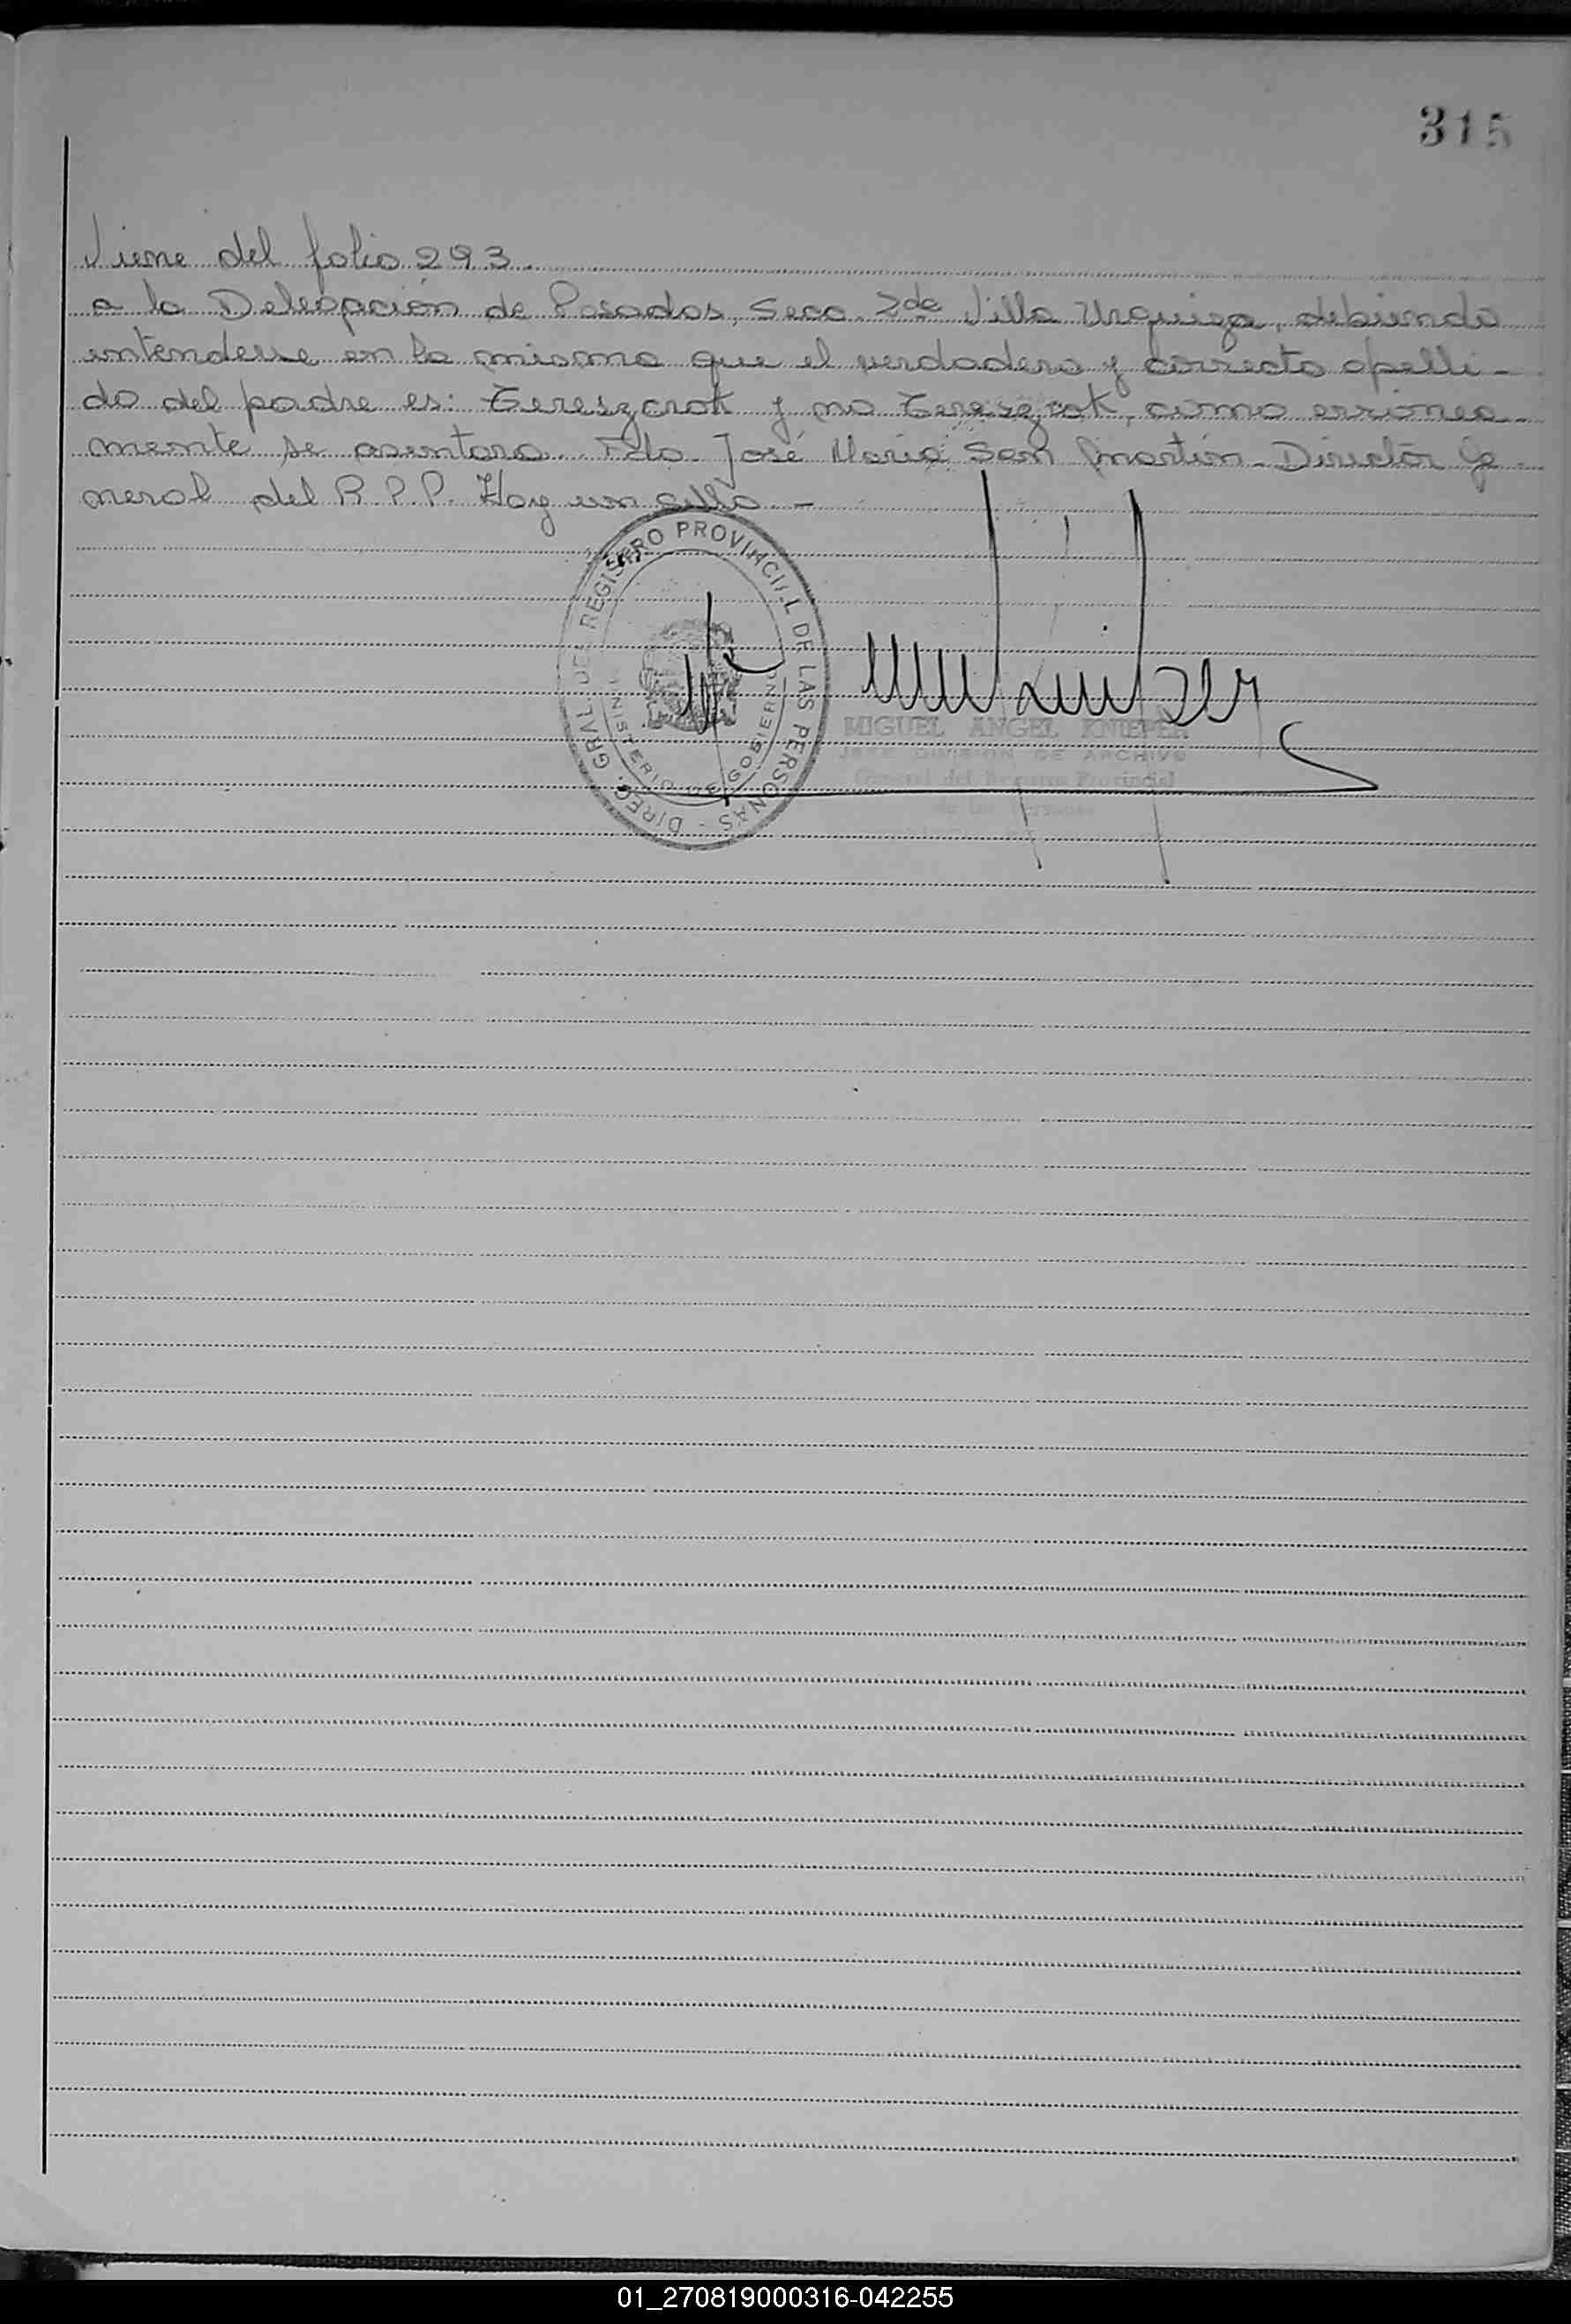 315
Viene del folio 293.
a la Delegación de Posadas, Secc. 2da Villa Urquiza, debiendo
entenderse en la misma que el verdadero y correcto apelli-
do del padre es: Tereszcrok y no, como erronea-
mente se asentara. Fdo. José María San Martín - Director Ge
neral del R.P.P. Hay un sello. -
DIREC. GRAL. DEL REGISTRO PROVINCIAL DE LAS PERSONAS -
MINISTERIO DE GOBIERNO
MIGUEL ANGEL KNIEPER
JEFE DIVISION DE ARCHIVO
General del Registro Provincial
de las Personas
01_270819000316-042255